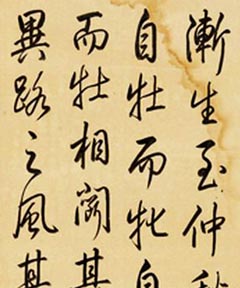 漸生至仲秋
自牡而牝自
而牡相其
異路之風其